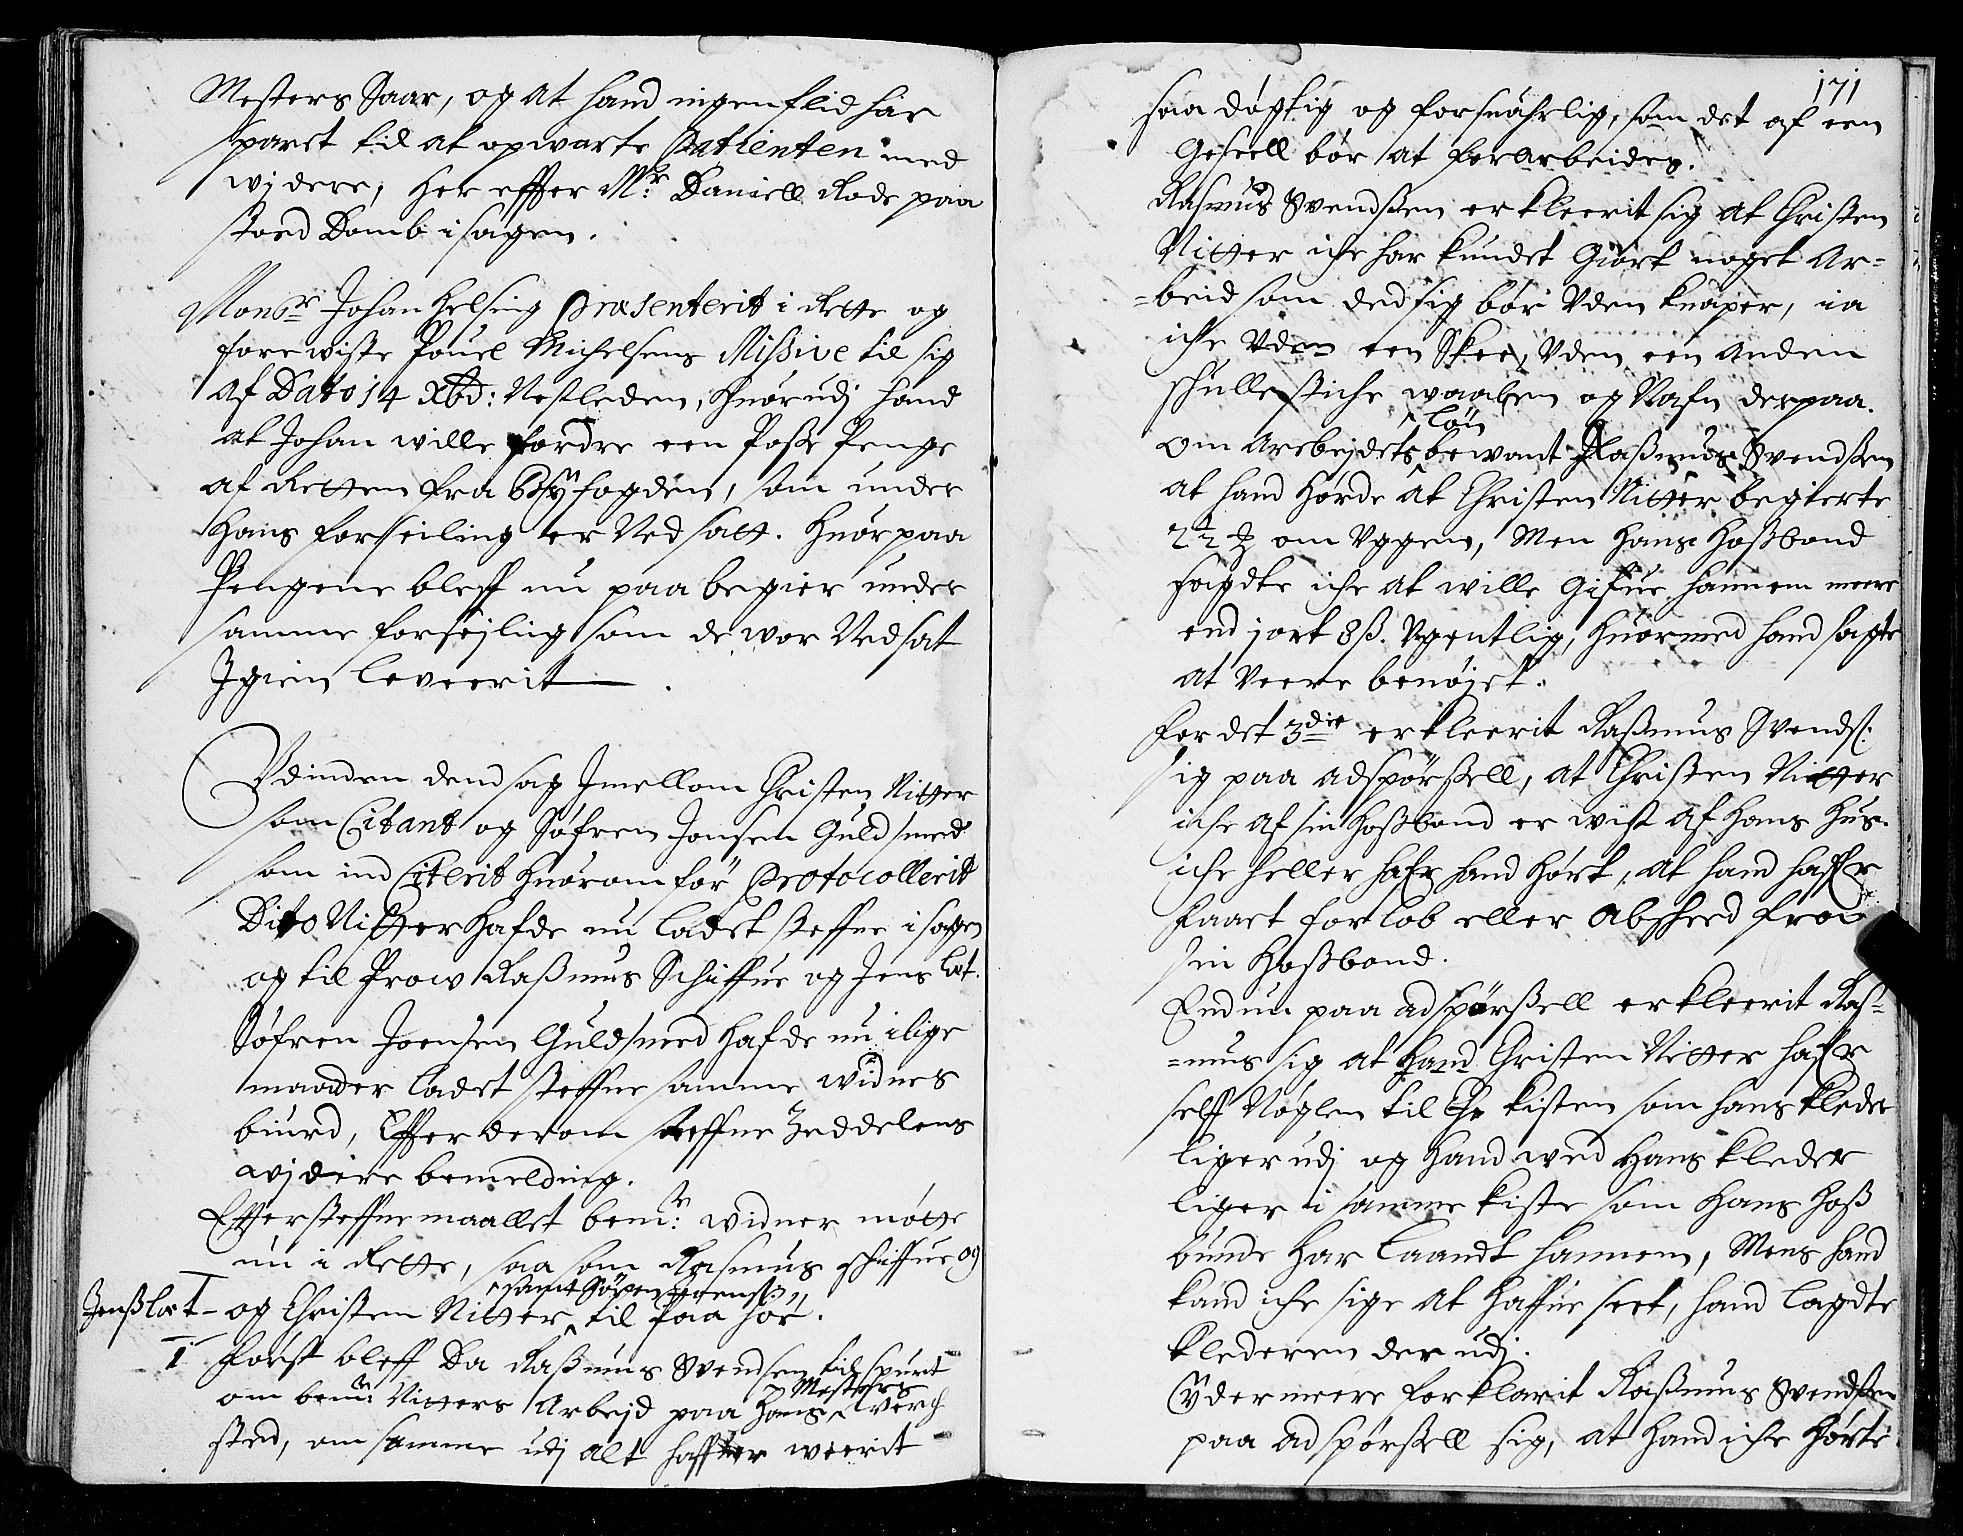 Mesters Saar, og at hand ingen flid har
sparet til at opwarte Patienten med
wjdere, her effter Mr: Daniell Rode paa
stoed Domb i sagen.
Monsr Johan Helsing Præsenterit i Rette og
forewiste Pouel Michelsens Missive til sig
af Dato 14 Xbd: Nestleden, huorudj hand
at Johan wille fordre een Pose Penge
af Retten fra Byfogden, som under
hans forseiling er Nedsatt. huorpaa
Pengene bleff nu paa begier under
samme forsejling som de wor Nedsat
Igien leveerit
Udinden dend sag Imellom Christen Nitter
som Citant og Søfren Jonsen Guldsmed
som ind Citerit huorom før Protocollerit
Dito Nitter hafde nu ladet steffne i sagen
og til Prow Rasmus Schiffue og Jens Læt.
Søfren Joensen Guldsmed hafde nu i lige
maader ladet steffne samme widnes
biurd, Effter derom steffne Zeddelens
widere bemelding.
Effter steffnemaallet bemte: widner møtte
nu i Rette, saa som Rasmus schiffue og
samt Søren Joensß
Jenß Læt - og Christen Nitter til paa hør.
1 først bleff da Rasmus Svendsen tilspurt
om bemte: Nitters Arbejd paa hans Mesters werch
sted, om samme udj alt haffuer weerit
171
saa døgtig og forsuahrlig, som det af een
Gesell bør at forarbeides.
Rasmus Svendßen erkleerit sig at Christen
Nitter iche har kundet Giort noget Ar=
=beid som ded sig bør Uden knaper, ia
iche Uden een Skee, Uden een anden
schulle stiche waaben og Nafn derpaa.
løn
om Arebejdets bewant Raßmus Svendßen
at hand hørde at Christen Nitter begierte
2½ om Uggen, Men hans Hoßbond
sagdte iche at wille Gifue hannem meere
end j ort 8 ß. Ugentlig, huormed hand sagte
at veere benøjet.
for det 3die erkleerit Raßmus Svends:
sig paa adspørßell, at Christen Nitter
iche af sin Hoßbond er wist af hans hus.
iche heller hafr hand hørt, at hand hafr
faaet forlob eller Abscheed fra
sin Hoßbond.
Endnu paa adspørßell erkleerit Ras=
=mus sig at hand Christen Nitter hafr
self Nøglen til kisten som hans kleder
liger udj og hand wed hans kleder
liger i samme kiste som hans Hoß
bunde har laandt hannem, Mens hand
kand iche sige at haffue seet, hand lagdte
klederen der udj.
Ydermeere forklarit Raßmus Svendßen
paa adspørßell sig, at hand iche hørte